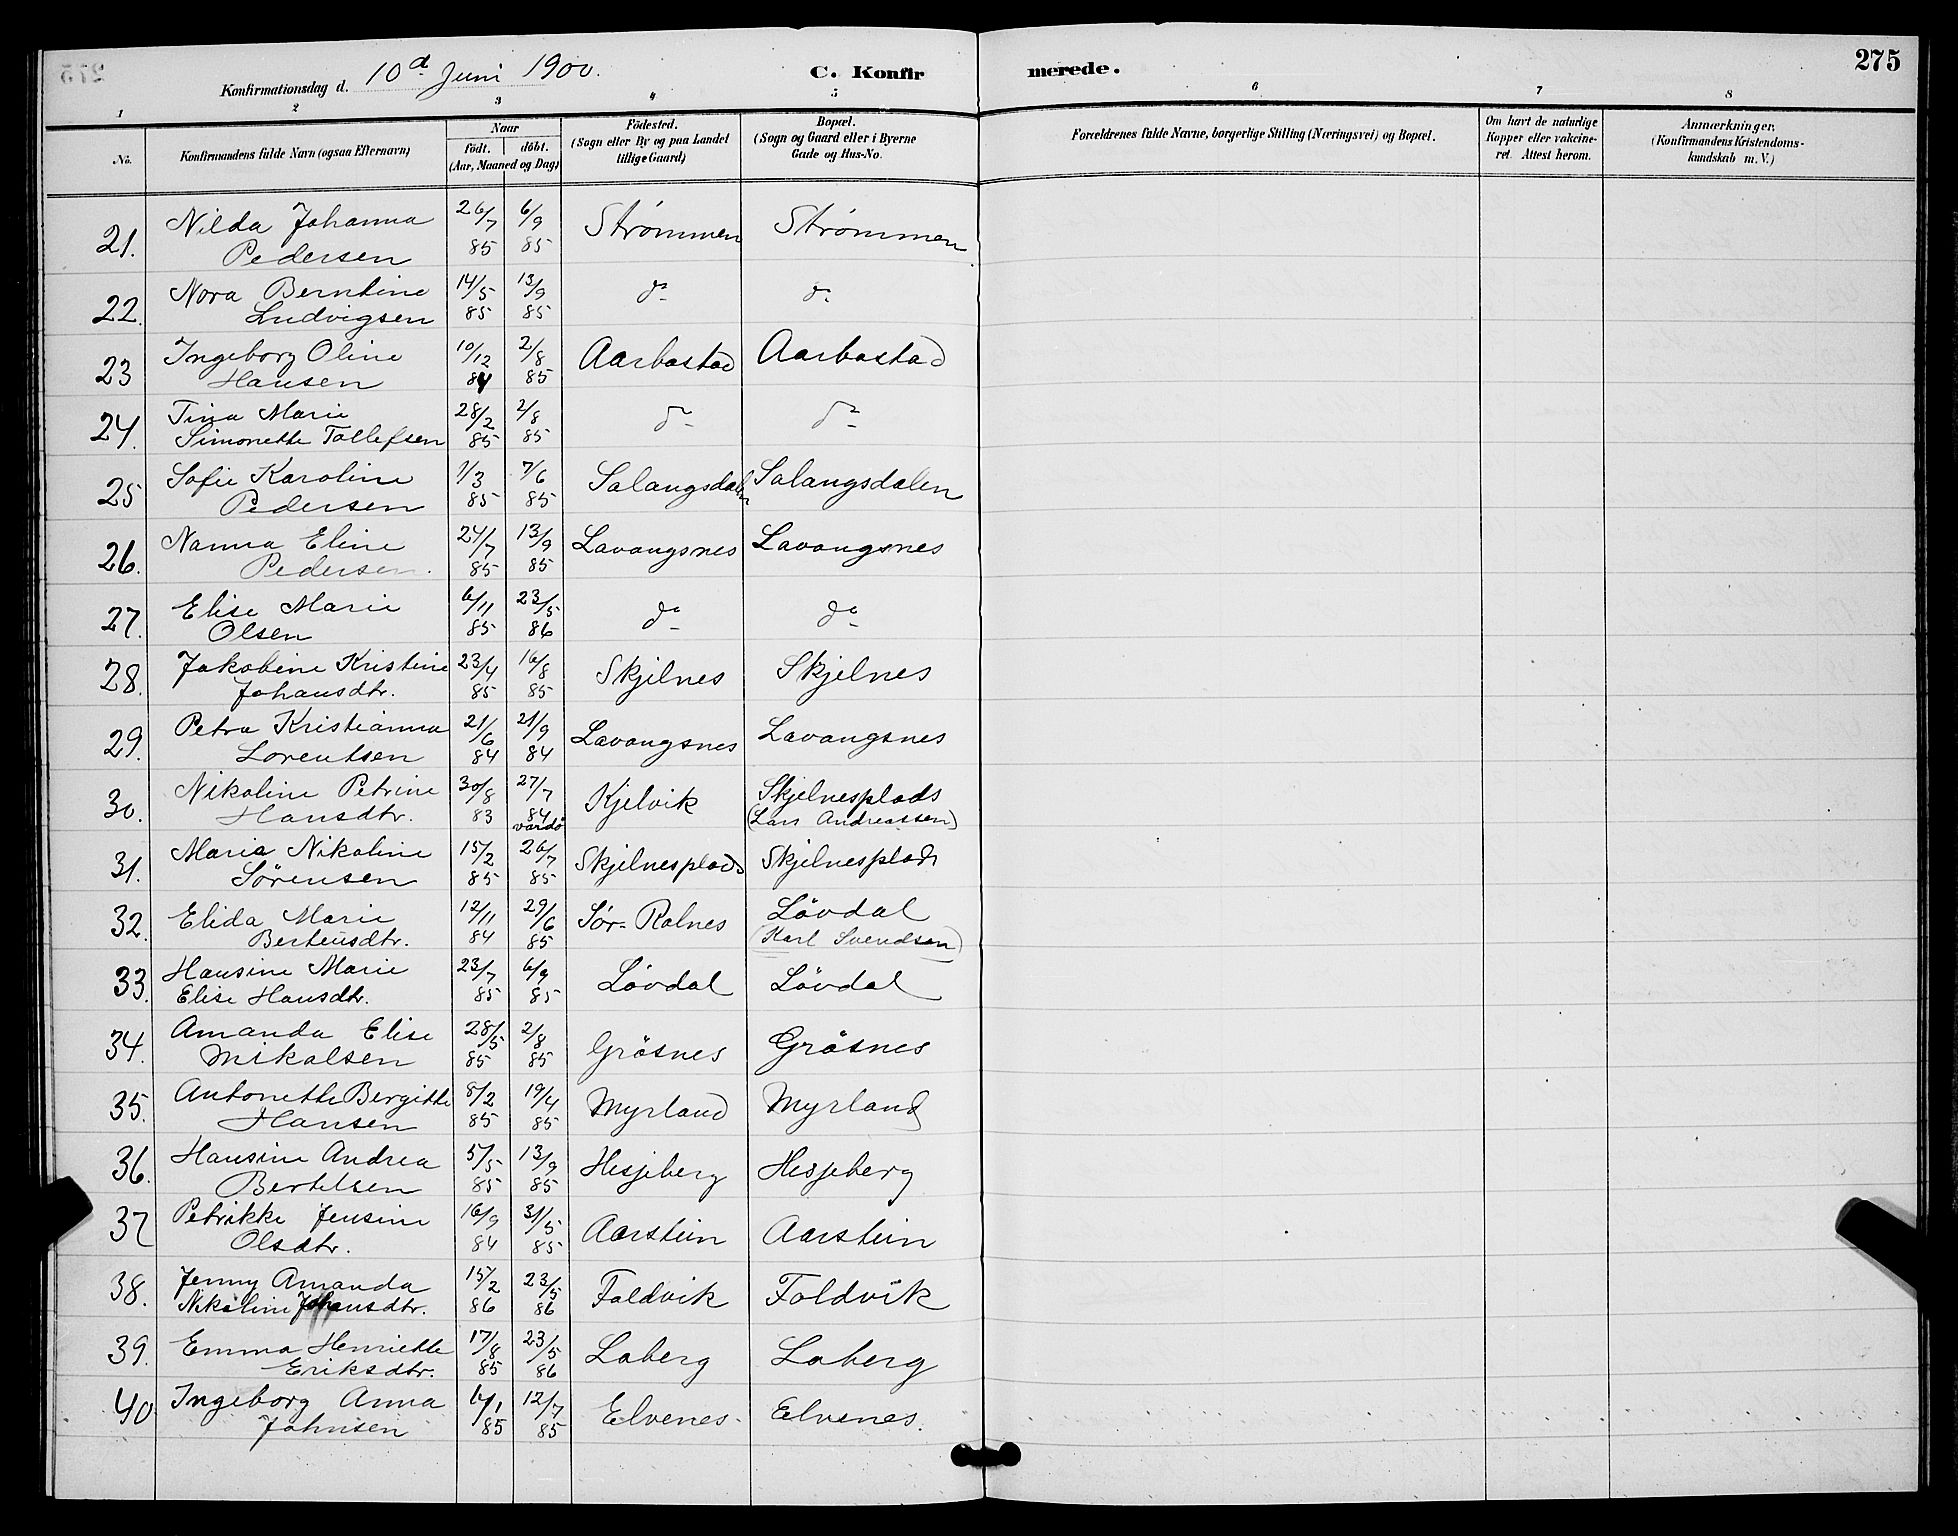 275
Konfirmationsdag d. 10d Juni 1900.
C. Konfirmerede.
1 2 3 4 5 6 7 8
No. Konfirmandens fulde Navn (ogsaa Efternavn) Naar født. døbt. (Aar, Maaned og Dag) Fødested. (Sogn eller By og paa Landet tillige Gaard) Bopæl. (Sogn og Gaard eller i Byerne Gade og Hus-No. Forældrenes fulde Navne, borgerlige Stilling (Næringsvei) og Bopæl. Om havt de naturlige Kopper eller vakcineret. Attest herom. Anmærkninger. (Konfirmandens Kristendomskundskab m. V.)
21. Nilda Johanna 26/7 6/9 Strømmen Strømmen
Pedersen 85 85
22. Nora Berntine 14/5 13/9 do do
Ludvigsen 85 85
23 Ingeborg Oline 10/12 2/8 Aarbostad Aarbostad
Hansen 84 85
24. Tina Marie 28/2 2/8 do do
Simonette Tollefsen 85 85
25 Sofie Karoline 1/3 7/6 Salangsdalen Salangsdalen
Pedersen 85 85
26. Nanna Eline 24/7 13/9 Lavangsnes Lavangsnes
Pedersen. 85 85
27. Elise Marie 6/11 23/5 do do
Olsen 85 86
28. Jakobine Kristine 23/4 16/8 Skjelnes Skjelnes
Johansdtr. 85 85
29. Petra Kristianna 21/6 21/9 Lavangsnes Lavangsnes
Lorentsen 84 84
30. Nikoline Petrine 30/8 27/7 Kjelvik Skjelnesplads
Hansdtr. 83 84 Vardö (Lars Andreassen)
31. Maria Nikoline 15/2 26/7 Skjelnesplads Skjelnesplads
Sörensen 85 85
32. Elida Marie 12/11 29/6 Sör-Rolnes Lövdal
Berteusdtr. 84 85 (Karl Svendsen)
33. Hansine Marie 23/7 6/9 Lövdal Lövdal
Elise Hansdtr. 85 85
34. Amanda Elise 28/5 2/8 Gråsnes Gråsnes
Mikalsen 85 85
35. Antonette Bergitte 8/2 19/4 Myrland Myrland
Hansen 85 85
36. Hansine Andrea 5/5 13/9 Hesjeberg Hesjeberg
Bertelsen 85 85
37 Petrikke Jensine 16/9 31/5 Aarstein Aarstein
Olsdtr. 84 85
38. Jenny Amanda 15/2 23/5 Foldvik Foldvik
Nikoline Johansdtr. 86 86
39. Emma Henriette 17/8 23/5 Laberg Laberg
Eriksdtr. 85 86
40 Ingeborg Anna 6/1 12/7 Elvenes Elvenes.
Johnsen 85 85